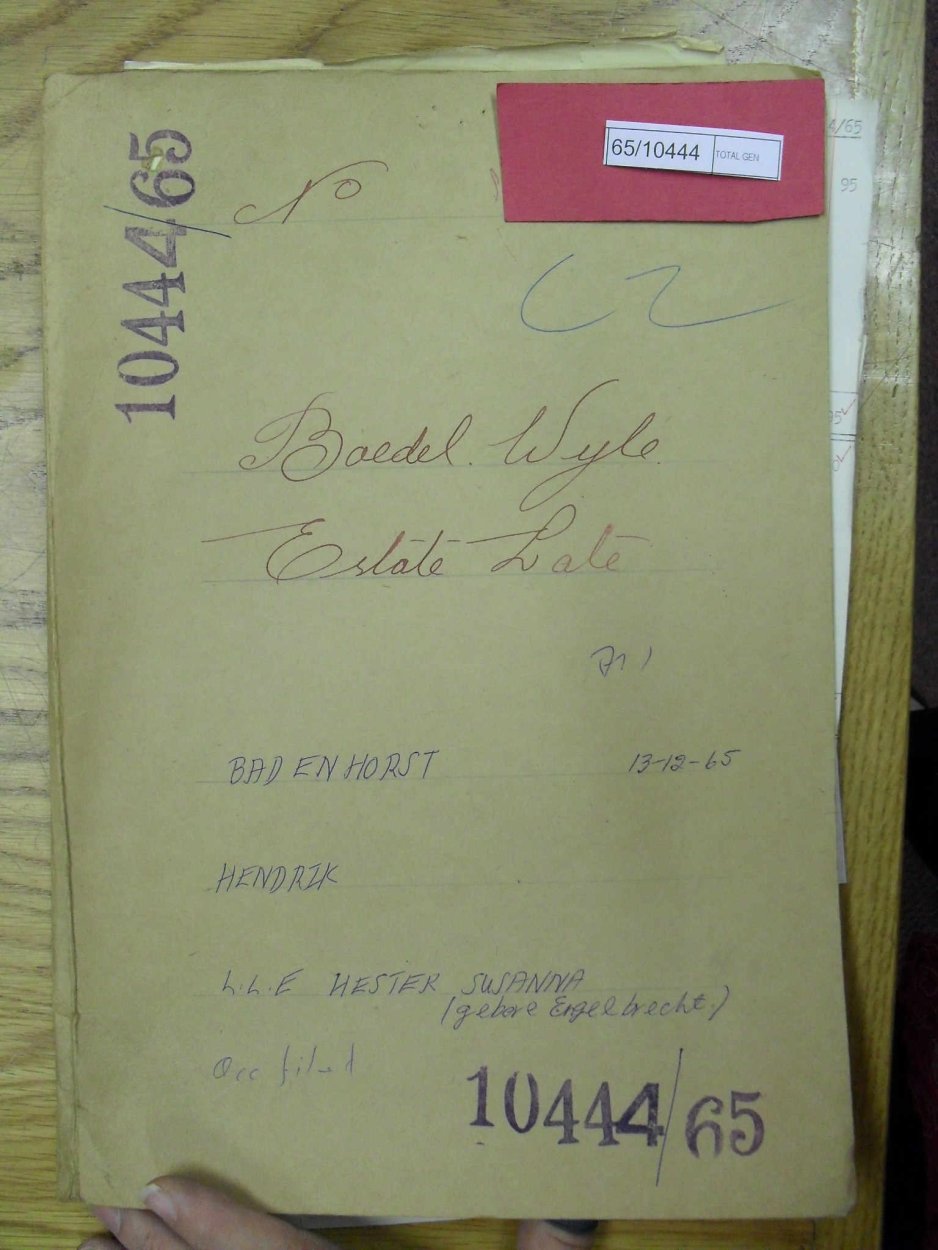 65/10444 TOTAL GEN
4/65
95
10444/65
No
Boedel Wyle
Estate Late
BADENHORST 13-12-65
HENDRIK
L.L.E HESTER SUSANNA
(gebore Engelbrecht)
Occ filed
10444/65